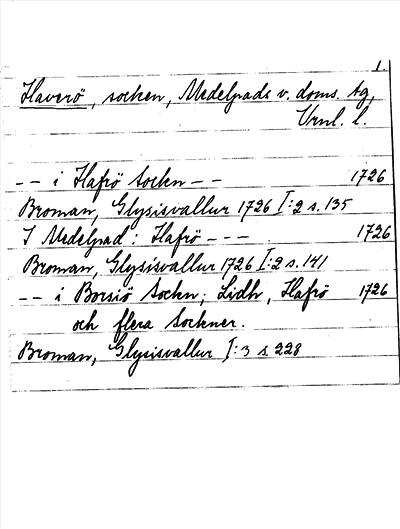 1.
Haverö, socken, Medelpads v. doms. tg,
Vrnl. l.
-- i Hafrö Sockn -- 1726
Broman, Glysisvallur 1726 I:2 s. 135
I Medelpad: Hafrö --- 1726
Broman, Glysisvallur 1726 I:2 s. 141
-- i Borsiö Sockn, Lidh, Hafrö 1726
och flera Sockner.
Broman, Glysisvallur I:3 s. 228